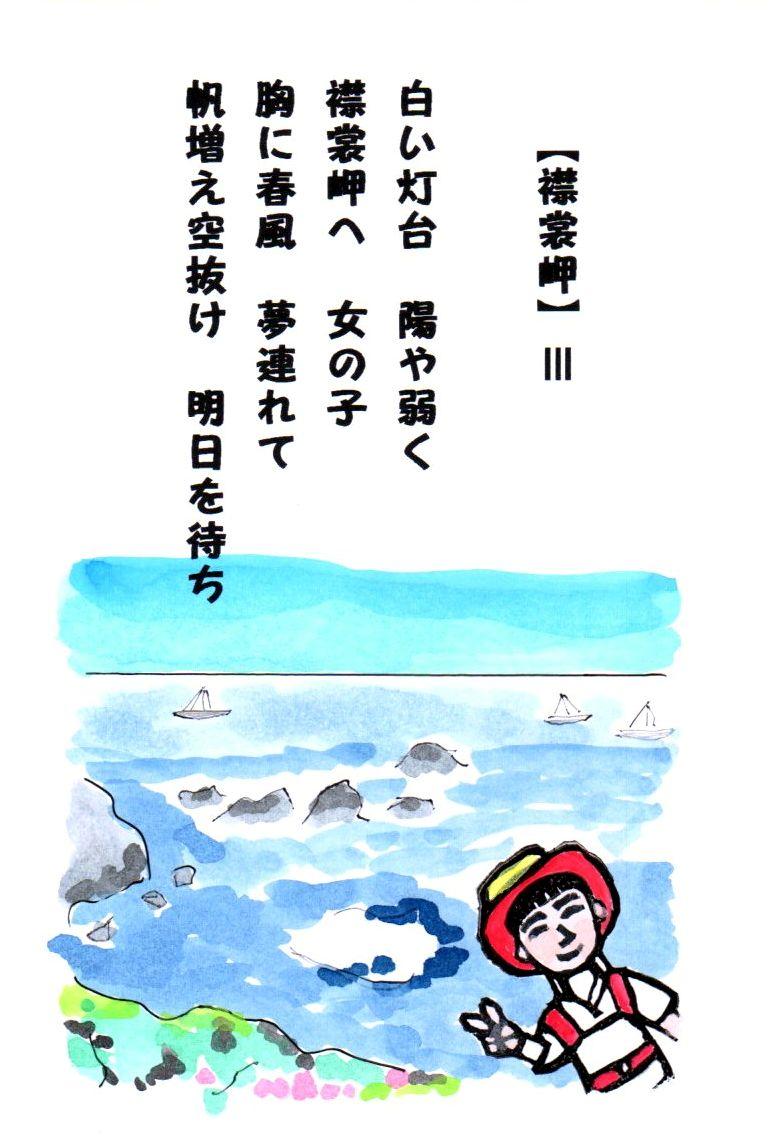 【襟裳岬】 Ⅲ
白い灯台 陽や弱く
襟裳岬へ 女の子
胸に春風 夢連れて
帆増え空抜け 明日を待ち